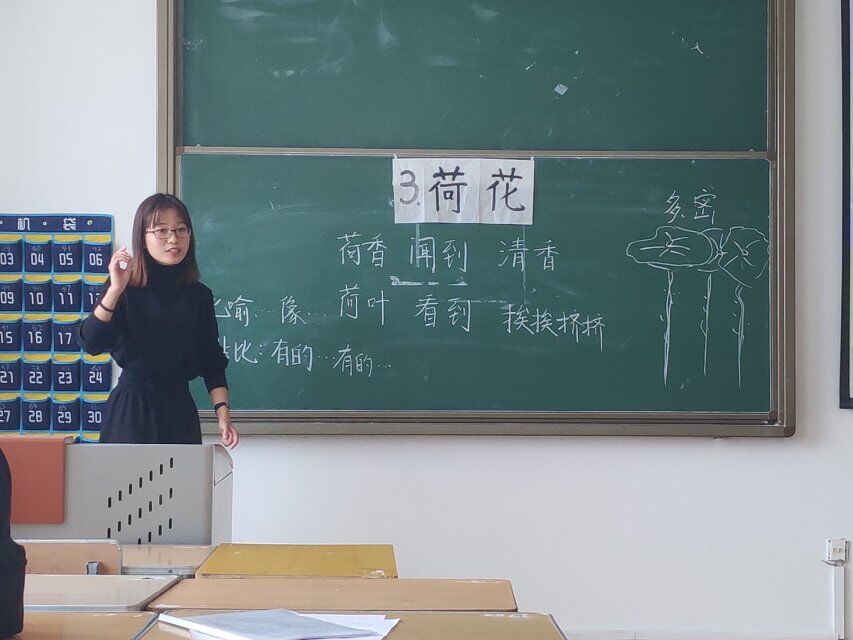 机 袋
03 04 05 06
09 10 11
15 16 17
21 22 23 24
27 28 29 30
3.荷花
多、密
荷香 闻到 清香
喻…像… 荷叶 看到 挨挨挤挤
比:有的…有的…